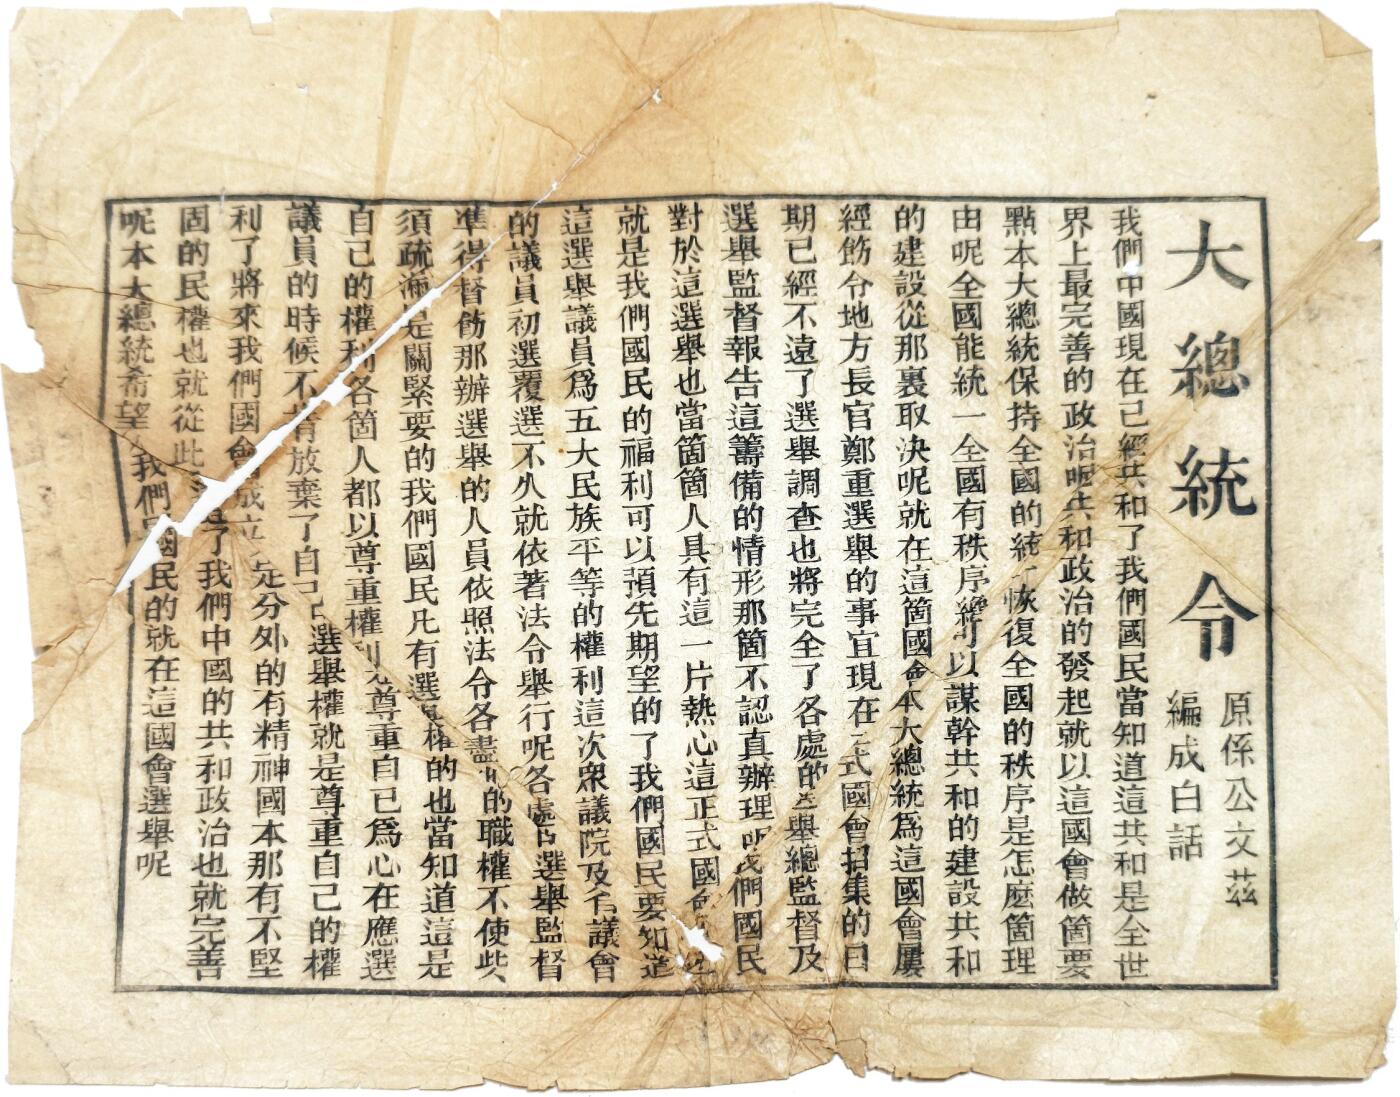 大總統令
原係公文茲
編成白話
我們中國現在已經共和了我們國民當知道這共和是全世
界上最完善的政治呢共和政治的發起就以這國會做箇要
點本大總統保持全國的統一恢復全國的秩序是怎麼箇理
由呢全國能統一全國有秩序纔可以謀幹共和的建設共和
的建設從那裏取決呢就在這箇國會本大總統為這國會屢
經飭令地方長官鄭重選舉的事宜現在正式國會招集的日
期已經不遠了選舉調查也將完全了各處的選舉總監督及
選舉監督報告這籌備的情形那箇不認真辦理呢我們國民
對於這選舉也當箇箇人具有這一片熱心這正式國會
就是我們國民的福利可以預先期望的了我們國民要知道
這選舉議員為五大民族平等的權利這次衆議院及省議會
的議員初選覆選不久就依著法令舉行呢各處的選舉監督
準得督飭那辦選舉的人員依照法令各盡他的職權不使些
須疏漏是關緊要的我們國民凡有選舉權的也當知道這是
自己的權利各箇人都以尊重權利尊重自己為心在應選
議員的時候不肯放棄了自己選舉權就是尊重自己的權
利了將來我們國會成立定分外的有精神國本那有不堅
固的民權也就從此了我們中國的共和政治也就完善
呢本大總統希望我們國民的就在這國會選舉呢